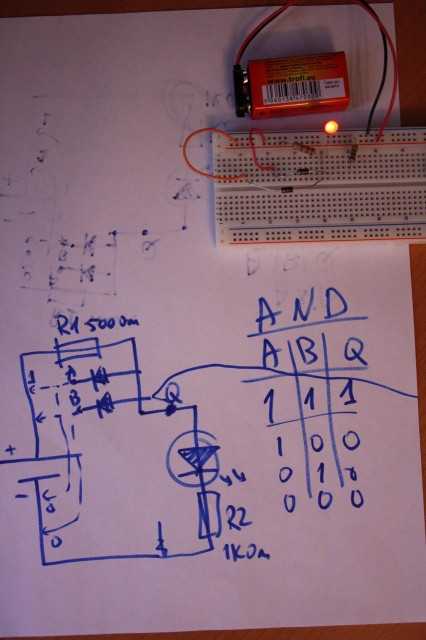 www.trofi.eu
R1 500 Om
1
A
B
1
Q
+
-
0
0
R2
1K Om
AND
A B Q
1 1 1
1 0 0
0 1 0
0 0 0